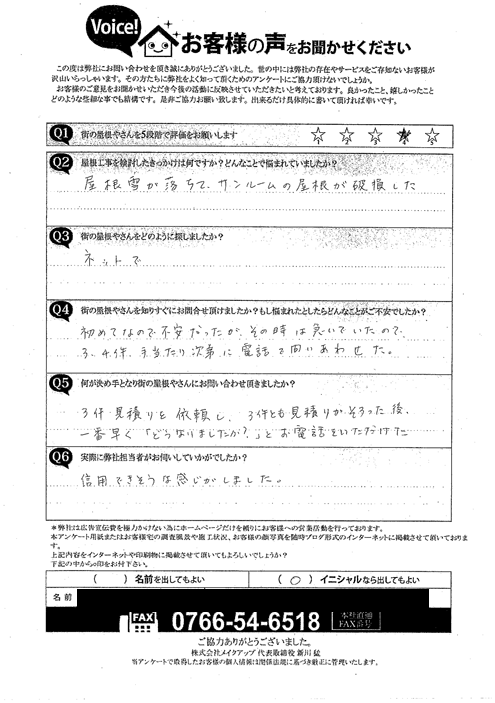 Voice!
お客様の声をお聞かせください
この度は弊社にお問い合わせを頂き誠にありがとうございました。世の中には弊社の存在やサービスをご存知ないお客様が
沢山いらっしゃいます。その方たちに弊社をよく知って頂くためのアンケートにご協力頂けないでしょうか。
お客様のご意見をお聞かせいただき今後の活動に反映させていただきたいと考えております。良かったこと、嬉しかったこと
どのような些細な事でも結構です。是非ご協力お願い致します。出来るだけ具体的に書いて頂ければ幸いです。
Q1 街の屋根やさんを5段階で評価をお願いします
Q2 屋根工事を検討したきっかけは何ですか?どんなことで悩まれていましたか?
屋根雪が落ちて、サンルームの屋根が破損した
Q3 街の屋根やさんをどのように探しましたか?
ネットで
Q4 街の屋根やさんを知りすぐにお問合せ頂けましたか?もし悩まれたとしたらどんなことがご不安でしたか?
初めてなので不安だったが、その時は急いでいたので、
3、4件、手当たり次第に電話で問いあわせた。
Q5 何が決め手となり街の屋根やさんにお問い合わせ頂きましたか?
3件見積りを依頼し、3件とも見積りがそろった後、
一番早く「どうなりましたか?」とお電話をいただけた
Q6 実際に弊社担当者がお伺いしていかがでしたか?
信用できそうな感じがしました。
*弊社は広告宣伝費を極力かけない為にホームページだけを頼りにお客様への営業活動を行っております。
本アンケート用紙またはお客様宅の調査風景や施工状況、お客様の顔写真を随時ブログ形式のインターネットに掲載させて頂いておりま
す。
上記内容をインターネットや印刷物に掲載させて頂いてもよろしいでしょうか?
下記の中から○印をお付け下さい。
( ) 名前を出してもよい
( ○ ) イニシャルなら出してもよい
名前
FAX 0766-54-6518 本社直通 FAX番号
ご協力ありがとうございました。
株式会社メイクアップ 代表取締役 新川 猛
当アンケートで取得したお客様の個人情報は関係法能に基づき厳正に管理いたします。